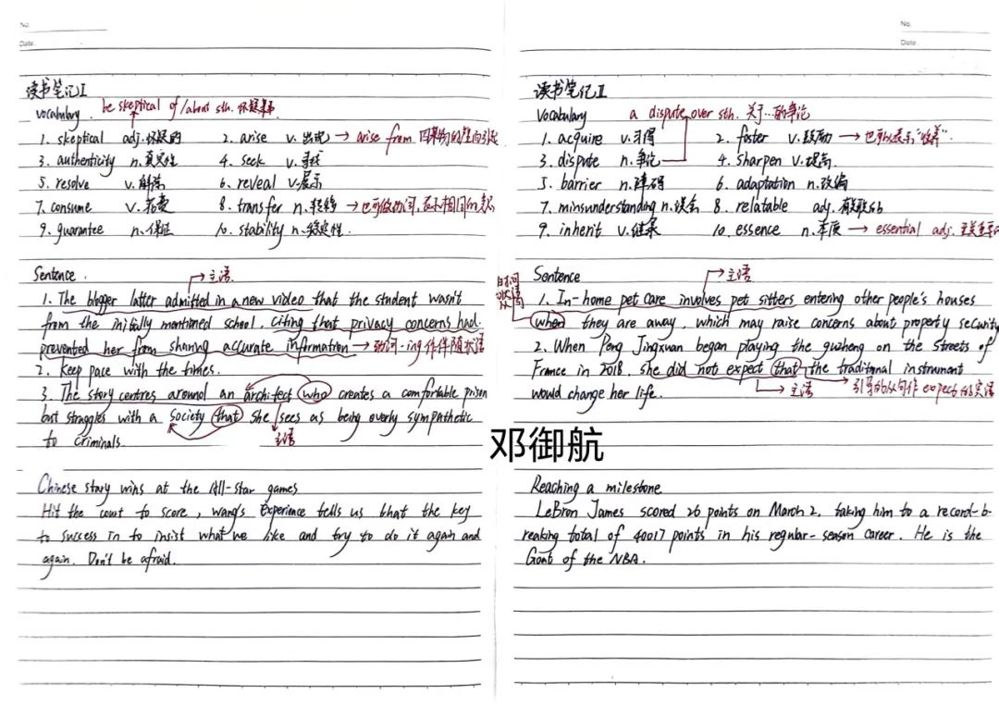 No.
Date.
读书笔记I
vocabulary. be skeptical of/about sth. 怀疑某事
1. skeptical adj.怀疑的 2. arise v. 出现 → arise from
3. authenticity n.真实性 4. seek v. 寻找
5. resolve v.解决 6. reveal v.展示
7. consume v.花费 8. transfer n.转移 → 也可做动词,
9. guarantee n.保证 10. stability n.稳定性.
Sentence.
→主语
1. The blogger latter admitted in a new video that the student wasn't
from the initially mentioned school, citing that privacy concerns had
prevented her from sharing accurate information → 动词-ing作伴随状语
2. Keep pace with the times.
3. The story centres around an architect who creates a comfortable prison
but struggles with a society that she sees as being overly sympathetic
主语
to criminals.
Chinese story wins at the All-Star games
Hit the court to score, wang's Experience tells us that the key
to success in to insist what we like and try to do it again and
again. Don't be afraid.
No.
Date.
读书笔记II
Vocabulary a dispute over sth. 关于..的争论
1. acquire v.习得 2. foster v.鼓励 → 也可以表示"收养".
3. dispute n.争论 4. sharpen v.提高.
5. barrier n.障碍 6. adaptation n.改编
7. minsunderstanding n.误会 8. relatable adj.
9. inherit v.继承 10. essence n.本质 → essential adj.
Sentence
→主语
1. In-home pet care involves pet sitters entering other people's houses
when they are away, which may raise concerns about property security
2. When Peng Jingxuan began playing the guzheng on the streets of
France in 2018, she did not expect that the traditional instrument
→主语 →引导的从句作expect的宾语
would change her life.
Reaching a milestone
LeBron James scored 26 points on March 2, taking him to a record-b-
reaking total of 40017 points in his regular-season career. He is the
Goat of the NBA.
邓御航